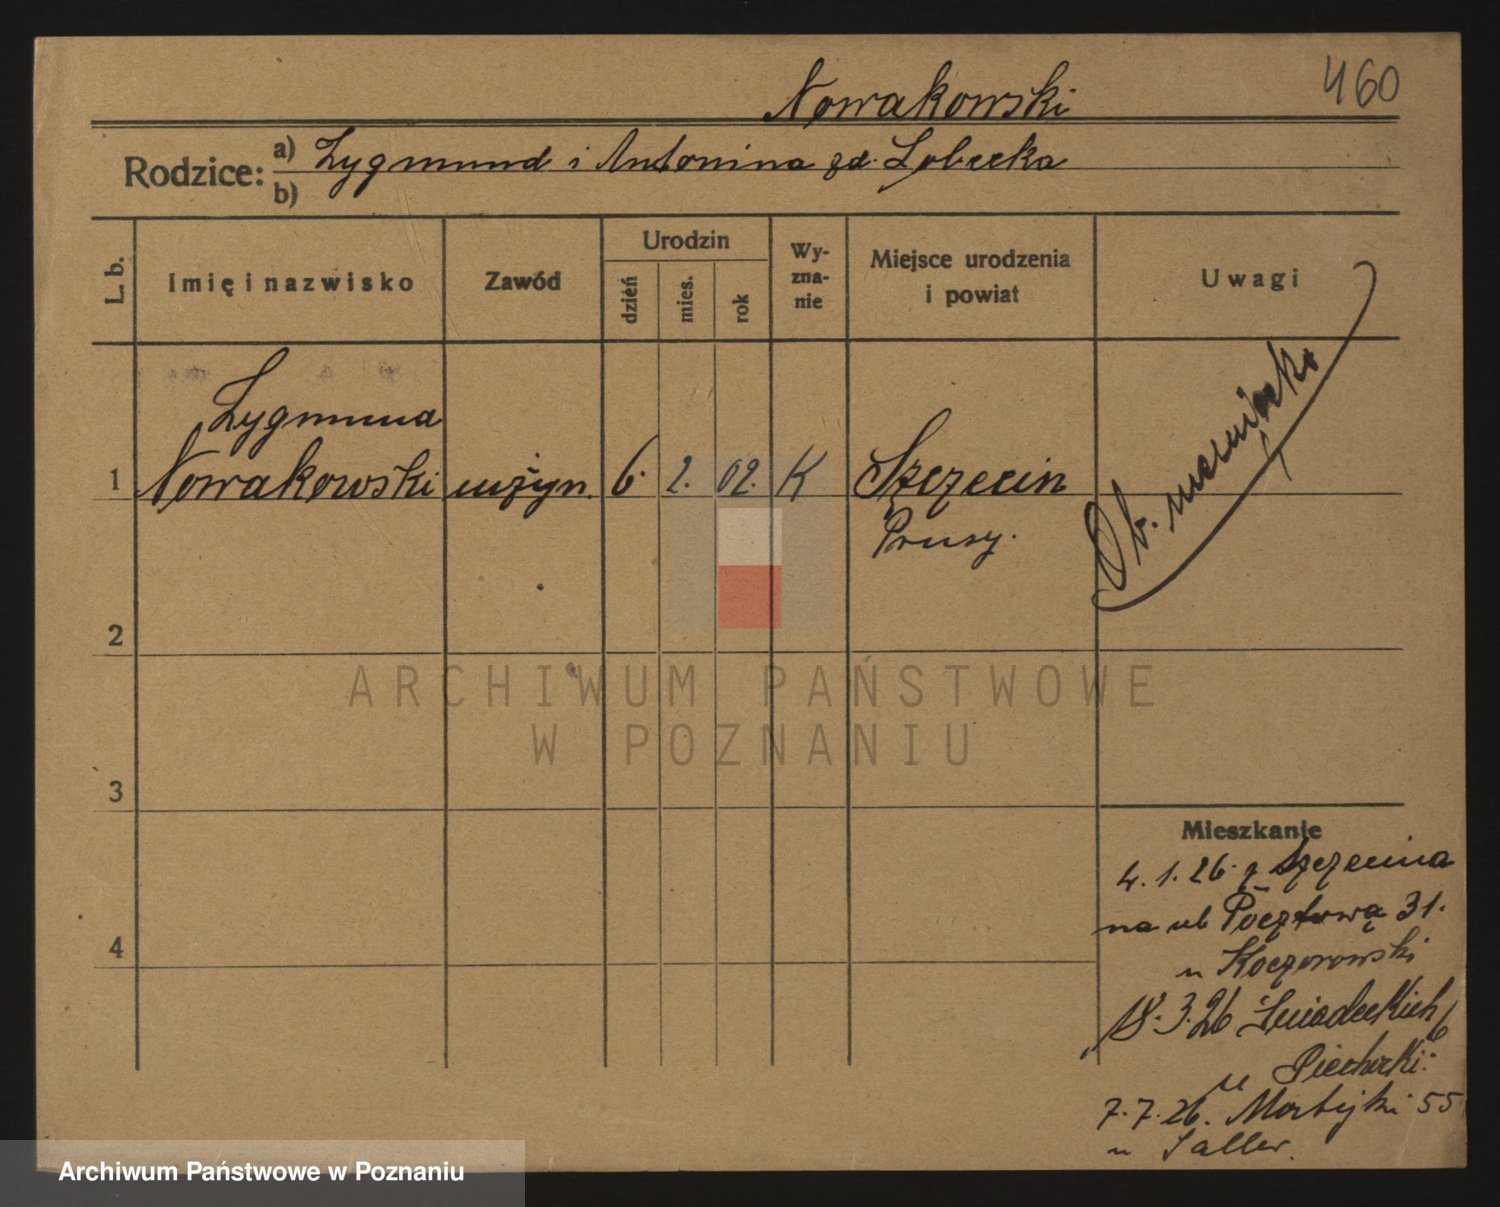 460
Nowakowski
Rodzice: a) Zygmund i Antonina zd. Lobecka
b)
L. b.
Imię i nazwisko
Zawód
Urodzin
dzień
mies.
rok
Wy-
zna-
nie
Miejsce urodzenia
i powiat
Uwagi
Zygmund
1 Nowakowski inżyn. 6. 2. 02. K Szczecin
Prusy.
Ob. niemiecki
2
3
4
Mieszkanie
4. 1. 26. z Szczecina
na ul Pocztową 31.
u Koczorowski
18. 3. 26 Śniadeckich 6
u Piechocki.
7. 7. 26. 55
u Saller.
ARCHIWUM PAŃSTWOWE
W POZNANIU
Archiwum Państwowe w Poznaniu